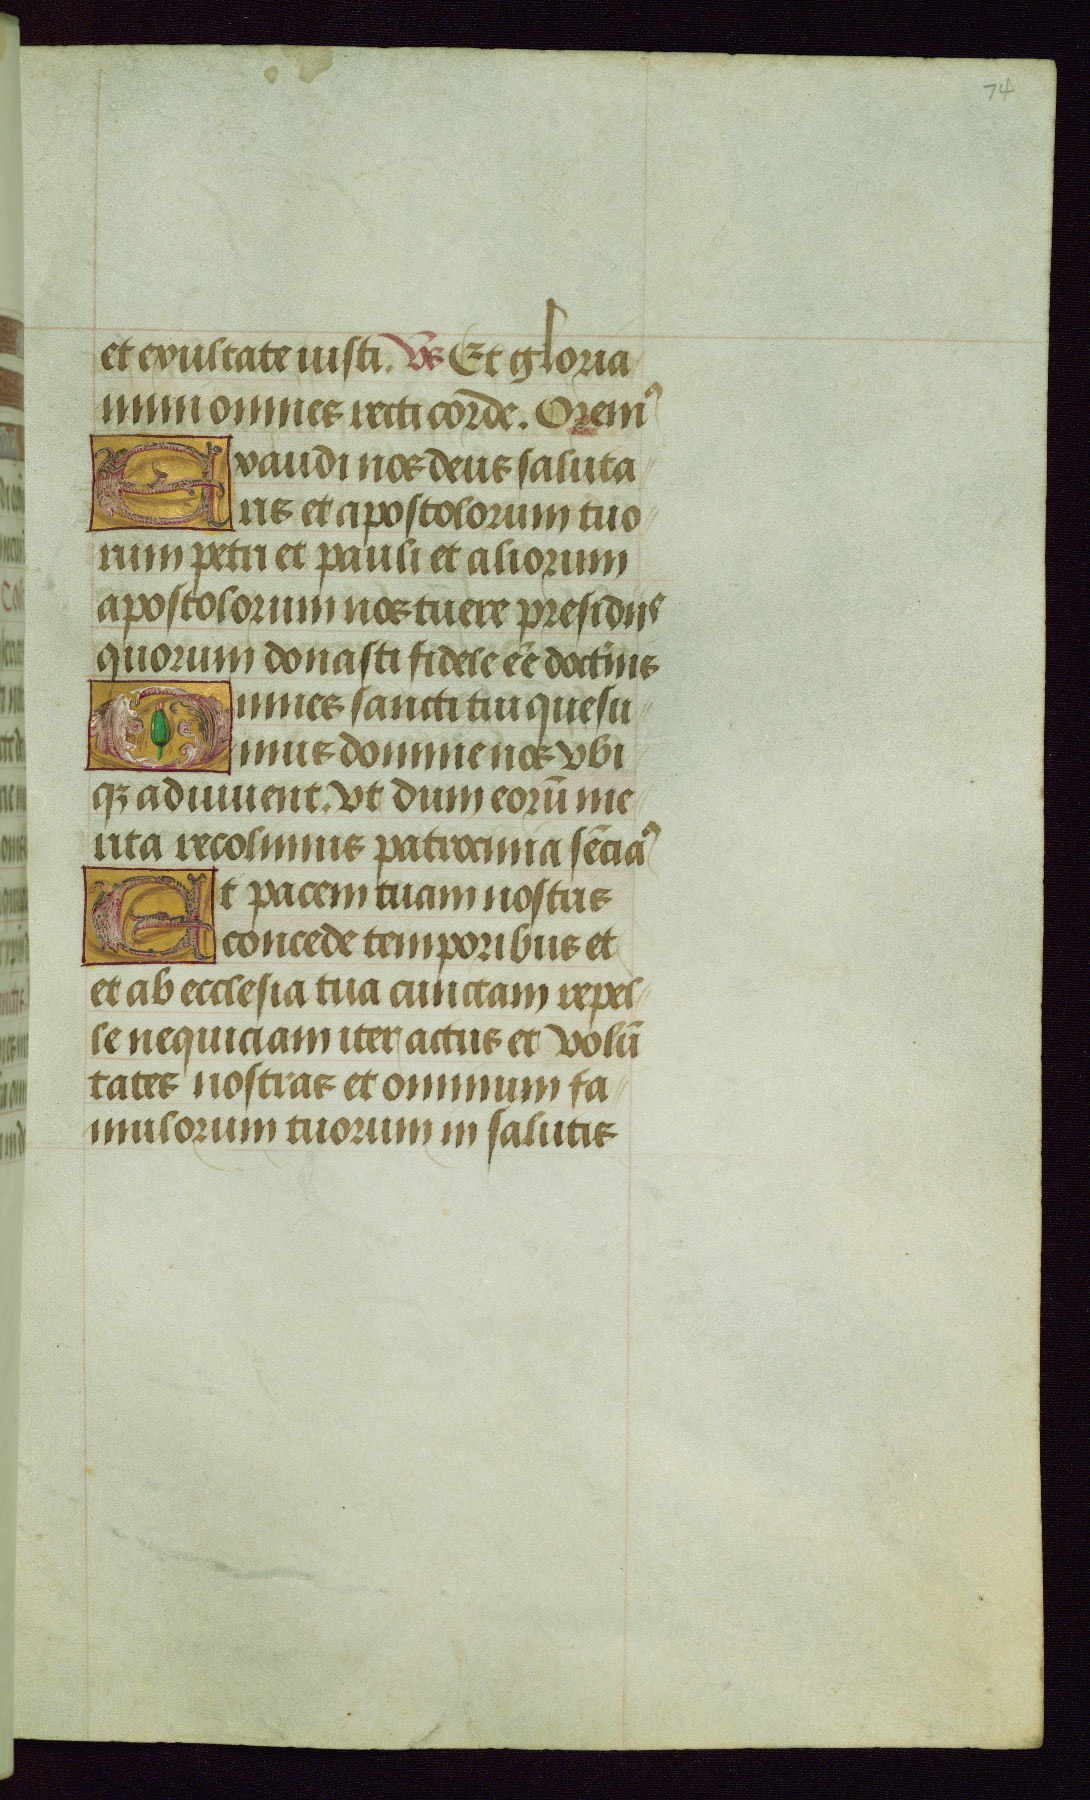 74
et exultate iusti. Vs Et gloria
mini omnes recti corde. Orem⁹
Exaudi nos deus saluta
ris et apostolorum tuo
rum petri et pauli et aliorum
apostolorum nos tuere presidiis
quorum donasti fidele eē doctinis
Omnes sancti tui quesu
mus domine nos vbi
qꝫ adiuuent. vt dum eorū me
rita recolimus patrocinia sēcia⁹
Et pacem tuam nostris
concede temporibus et
et ab ecclesia tua cunctam repel
le nequiciam iter actus et volū
tates nostras et omnium fa
mulorum tuorum in salutis